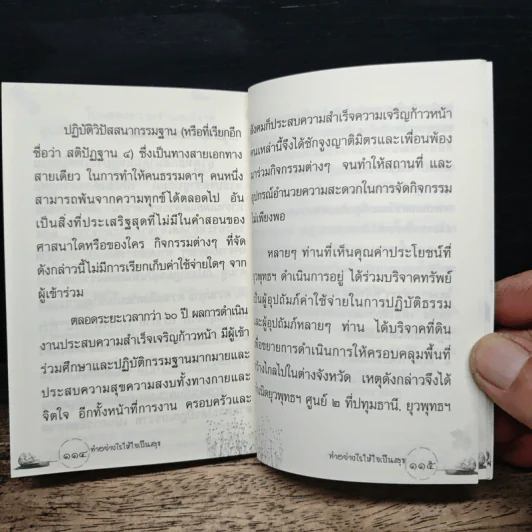 ปฏิบัติวิปัสสนากรรมฐาน (หรือที่เรียกอีก
ชื่อว่า สติปัฏฐาน ๔) ซึ่งเป็นทางสายเอกทาง
สายเดียว ในการทำให้คนธรรมดาๆ คนหนึ่ง
สามารถพ้นจากความทุกข์ได้ตลอดไป อัน
เป็นสิ่งที่ประเสริฐสุดที่ไม่มีในคำสอนของ
ศาสนาใดหรือของใคร กิจกรรมต่างๆ ที่จัด
ดังกล่าวนี้ไม่มีการเรียกเก็บค่าใช้จ่ายใดๆ จาก
ผู้เข้าร่วม
ตลอดระยะเวลากว่า ๖๐ ปี ผลการดำเนิน
งานประสบความสำเร็จเจริญก้าวหน้า มีผู้เข้า
ร่วมศึกษาและปฏิบัติกรรมฐานมากมายและ
ประสบความสุขความสงบทั้งทางกายและ
จิตใจ อีกทั้งหน้าที่การงาน ครอบครัวและ
๑๑๔ ทำอย่างไรให้ใจเป็นสุข
สังคมก็ประสบความสำเร็จความเจริญก้าวหน้า
คนเหล่านี้จึงได้ชักจูงญาติมิตรและเพื่อนพ้อง
มาร่วมกิจกรรมต่างๆ จนทำให้สถานที่ และ
อุปกรณ์อำนวยความสะดวกในการจัดกิจกรรม
ไม่เพียงพอ
หลายๆ ท่านที่เห็นคุณค่าประโยชน์ที่
ยุวพุทธฯ ดำเนินการอยู่ ได้ร่วมบริจาคทรัพย์
เป็นผู้อุปถัมภ์ค่าใช้จ่ายในการปฏิบัติธรรม
และผู้อุปถัมภ์หลายๆ ท่าน ได้บริจาคที่ดิน
เพื่อขยายการดำเนินการให้ครอบคลุมพื้นที่
กว้างไกลไปในต่างจังหวัด เหตุดังกล่าวจึงได้
กำเนิดยุวพุทธฯ ศูนย์ ๒ ที่ปทุมธานี, ยุวพุทธฯ
ทำอย่างไรให้ใจเป็นสุข ๑๑๕